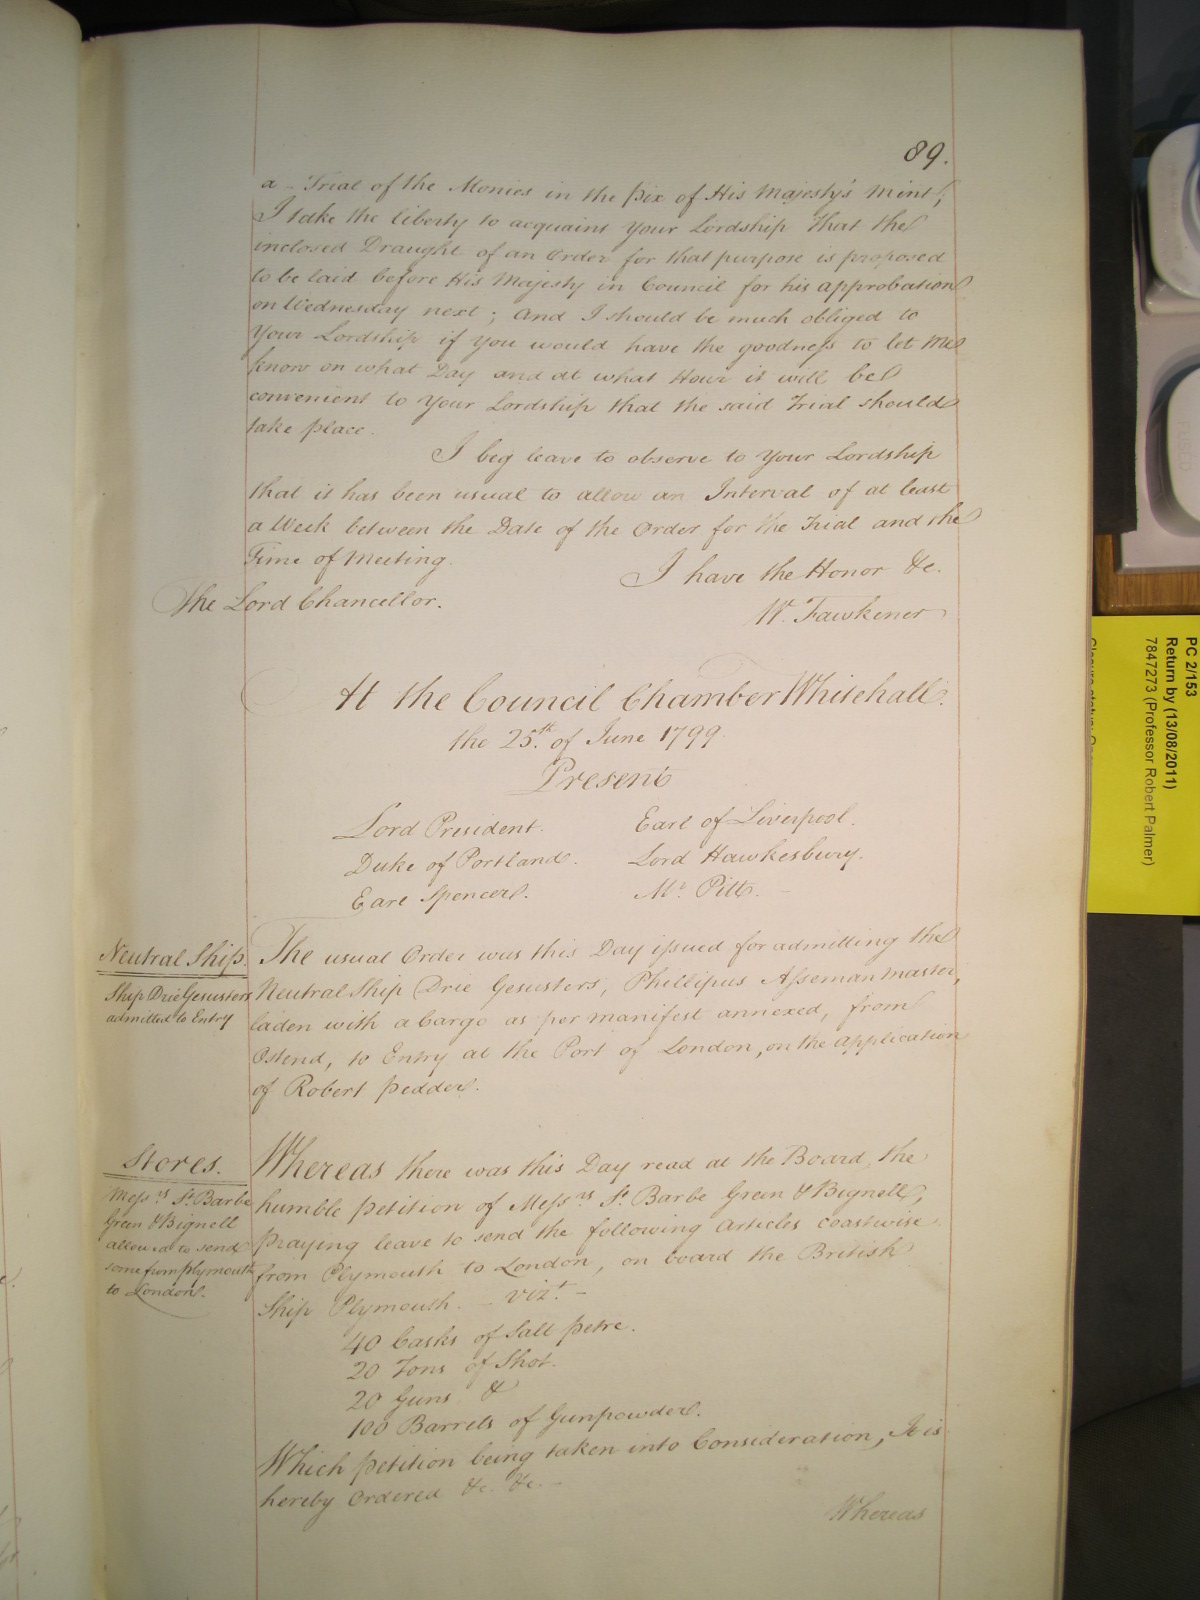 89.
a - Trial of the Monies in the Pix of His Majesty's Mint;
I take the liberty to acquaint Your Lordship that the
inclosed Draught of an Order for that purpose is proposed
to be laid before His Majesty in Council for his approbation
on Wednesday next; And I should be much obliged to
Your Lordship if you would have the goodness to let me
know on what Day and at what Hour it will be
convenient to Your Lordship that the said Trial should
take place.
I beg leave to observe to Your Lordship
that it has been usual to allow an Interval of at least
a Week between the Date of the Order for the Trial and the
Time of Meeting.
I have the Honor &c.
The Lord Chancellor.
W. Fawkener
At the Council Chamber Whitehall.
the 25th. of June 1799
Present
Lord President. Earl of Liverpool.
Duke of Portland. Lord Hawkesbury.
Earl Spencer. Mr. Pitt. -
Neutral Ship.
Ship Drie Gesusters
admitted to Entry
The usual Order was this Day issued for admitting the
Neutral Ship Drie Gesusters, Phillipus Asseman Master,
laden with a Cargo as per manifest annexed, from
Ostend, to Entry at the Port of London, on the Application
of Robert Pedder.
Stores.
Messrs. St. Barbe
Green & Bignell
allowed to send
some from Plymouth
to London.
Whereas there was this Day read at the Board, the
humble Petition of Messrs. St. Barbe Green & Bignell,
Praying leave to send the following Articles coastwise
from Plymouth to London, on board the British
Ship Plymouth. - vizt. -
40 Casks of Salt Petre.
20 Tons of Shot.
20 Guns &
100 Barrels of Gunpowder.
Which Petition being taken into Consideration, It is
hereby Ordered &c. &c. -
Whereas
PC 2/153
Return by (13/08/2011)
7847273 (Professor Robert Palmer)